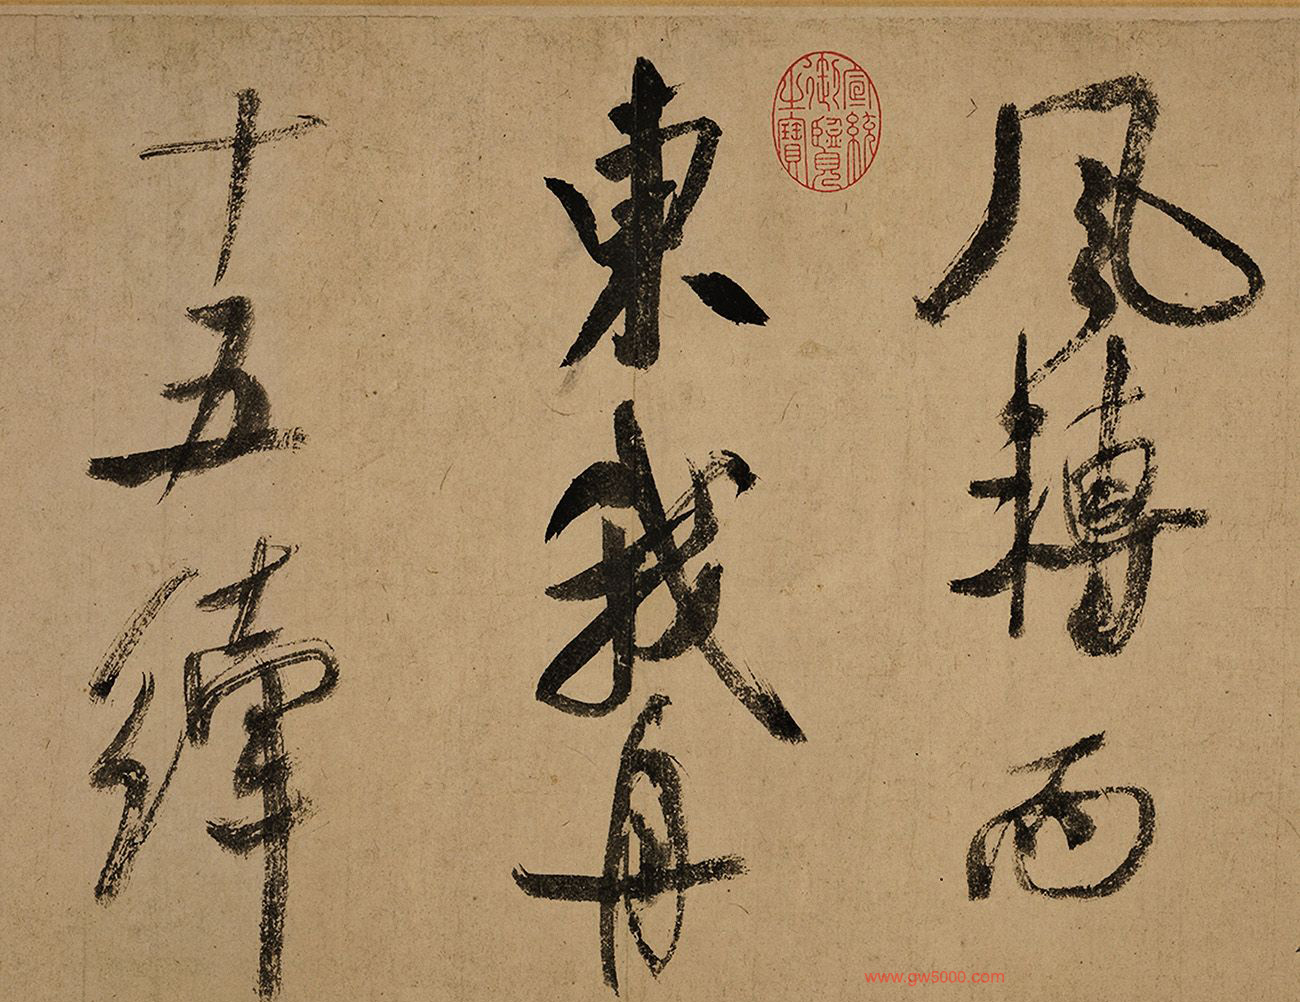 風轉而
東我舟
十五縴
宣統
御覽
之寶
www.gw5000.com